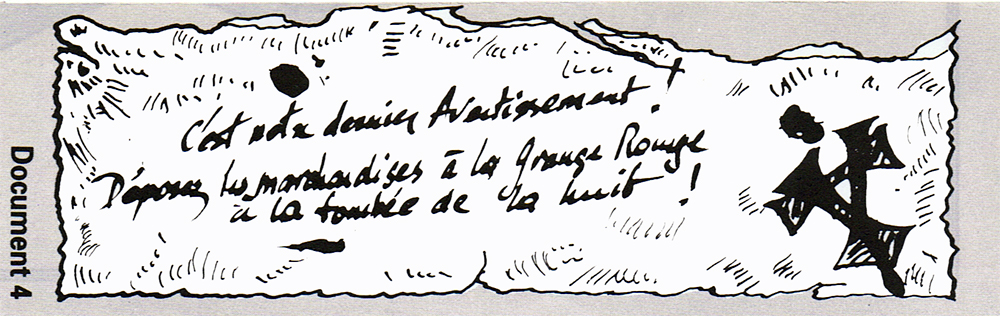 C'est notre dernier Avertissement !
Déposez les marchandises à la Grange Rouge
à la tombée de la nuit !
Document 4